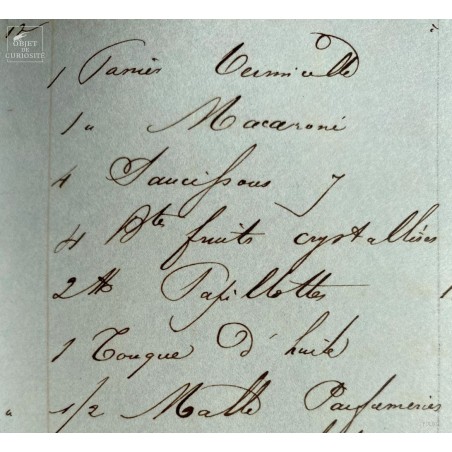 OBJET
DE
CURIOSITÉ
1 Panier Vermicelle
1 " Macaroni
4 Saucissons 7
4 Btes fruits crystallisés
2 lb Papillottes
1 Touque d'huile
" 1/2 Malle Parfumeries